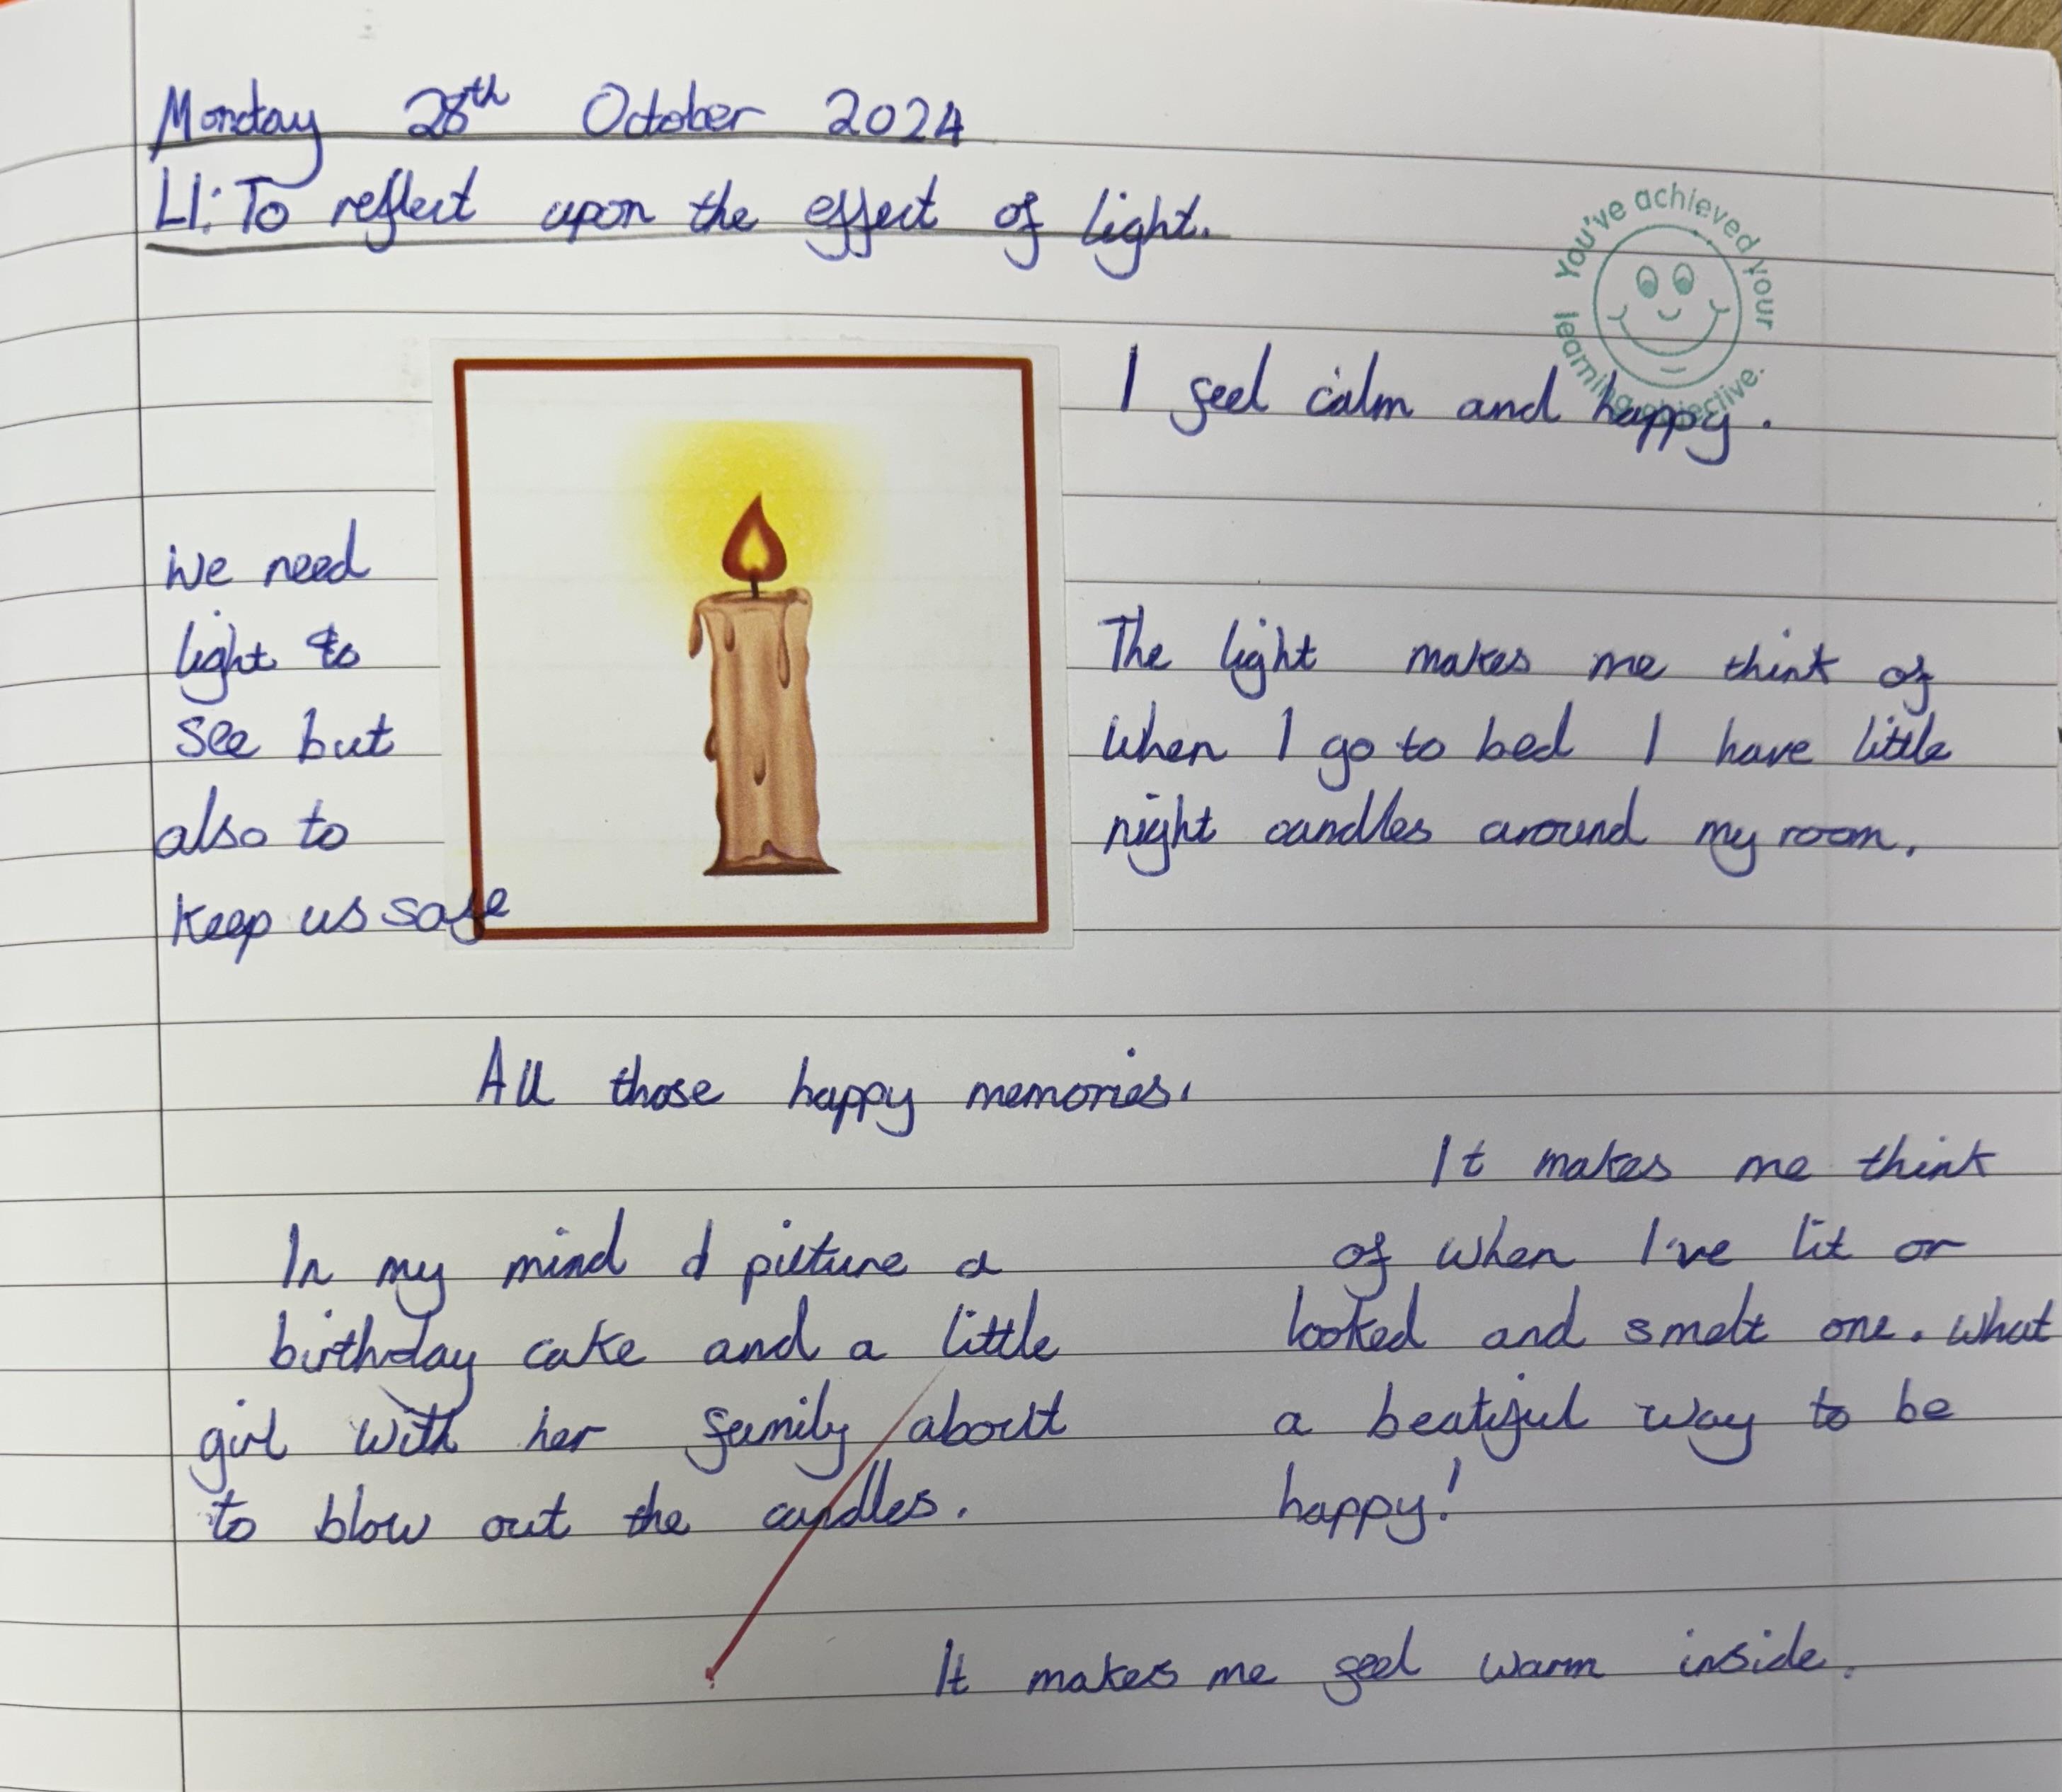 Monday 28th October 2024
LI: To reflect upon the effect of light.
You've achieved your learning objective.
I feel calm and happy.
We need
light to
see but
also to
keep us safe
The light makes me think of
when I go to bed I have little
night candles around my room.
All those happy memories.
It makes me think
of when I've lit or
looked and smelt one. What
a beatiful way to be
happy!
In my mind I picture a
birthday cake and a little
girl with her family about
to blow out the candles.
It makes me feel warm inside.